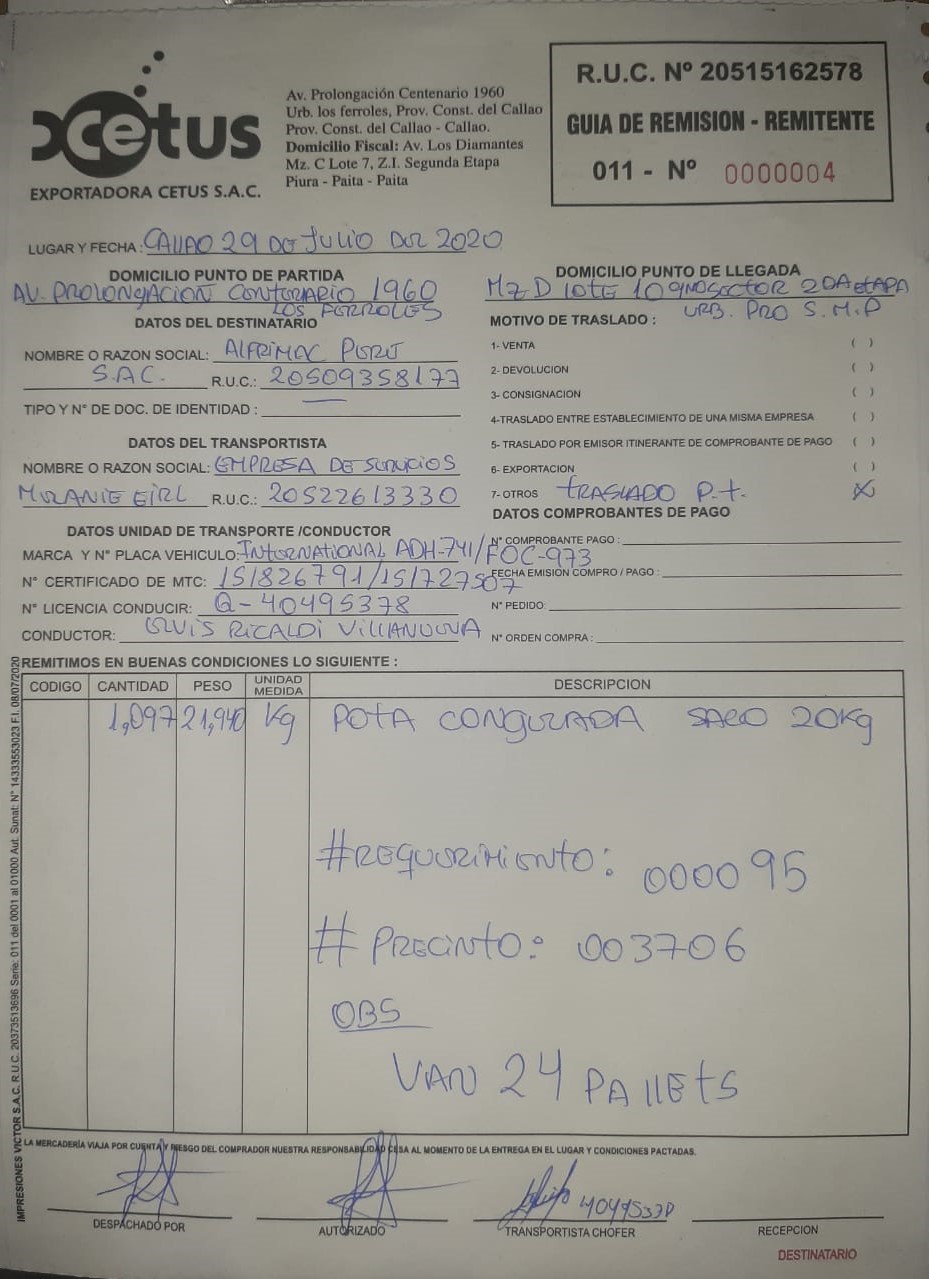 Cetus
EXPORTADORA CETUS S.A.C.
Av. Prolongación Centenario 1960
Urb. los ferroles, Prov. Const. del Callao
Prov. Const. del Callao - Callao.
Domicilio Fiscal: Av. Los Diamantes
Mz. C Lote 7, Z.I. Segunda Etapa
Piura - Paita - Paita
R.U.C. Nº 20515162578
GUIA DE REMISION - REMITENTE
011 - Nº 0000004
LUGAR Y FECHA : CALLAO 29 DE JULIO DEL 2020
DOMICILIO PUNTO DE PARTIDA
AV. PROLONGACION CENTENARIO 1960
LOS FERROLES
DATOS DEL DESTINATARIO
NOMBRE O RAZON SOCIAL: ALFRIMAC PERU
S.A.C. R.U.C.: 20509358177
TIPO Y N° DE DOC. DE IDENTIDAD : —
DATOS DEL TRANSPORTISTA
NOMBRE O RAZON SOCIAL: EMPRESA DE SERVICIOS
MURANIE EIRL R.U.C.: 20522613330
DATOS UNIDAD DE TRANSPORTE /CONDUCTOR
MARCA Y N° PLACA VEHICULO: INTERNATIONAL ADH-741/FOC-973
N° CERTIFICADO DE MTC: 15/826791/15/727507
N° LICENCIA CONDUCIR: Q-40495378
CONDUCTOR: LUIS RICALDI VILLANUEVA
DOMICILIO PUNTO DE LLEGADA
MZ D LOTE 10 9NO SECTOR 2DA ETAPA
URB. PRO S.M.P
MOTIVO DE TRASLADO :
1- VENTA ( )
2- DEVOLUCION ( )
3- CONSIGNACION ( )
4-TRASLADO ENTRE ESTABLECIMIENTO DE UNA MISMA EMPRESA ( )
5- TRASLADO POR EMISOR ITINERANTE DE COMPROBANTE DE PAGO ( )
6- EXPORTACION ( )
7- OTROS TRASLADO P.t. (X)
DATOS COMPROBANTES DE PAGO
N° COMPROBANTE PAGO :
FECHA EMISION COMPRO / PAGO :
N° PEDIDO:
N° ORDEN COMPRA :
REMITIMOS EN BUENAS CONDICIONES LO SIGUIENTE :
CODIGO CANTIDAD PESO UNIDAD MEDIDA DESCRIPCION
1,097 21,940 Kg POTA CONGELADA SACO 20Kg
#REQUERIMIENTO: 000095
# PRECINTO: 003706
OBS
VAN 24 PALLETS
IMPRESIONES VICTOR S.A.C. R.U.C. 20373513696 Serie: 011 del 0001 al 01000 Aut. Sunat: N° 14333553023 F.I. 08/07/2020
LA MERCADERÍA VIAJA POR CUENTA Y RIESGO DEL COMPRADOR NUESTRA RESPONSABILIDAD CESA AL MOMENTO DE LA ENTREGA EN EL LUGAR Y CONDICIONES PACTADAS.
DESPACHADO POR
AUTORIZADO
TRANSPORTISTA CHOFER
RECEPCION
DESTINATARIO